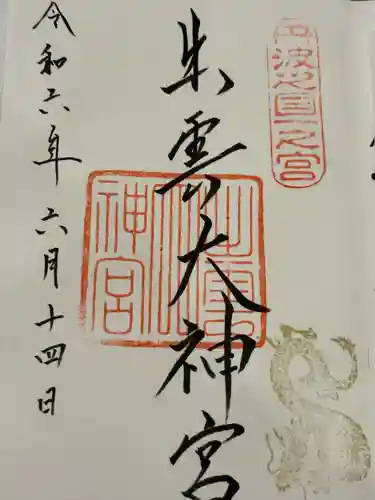 丹波國一之宮
出雲大神宮
出雲大神宮
令和六年 六月十四日